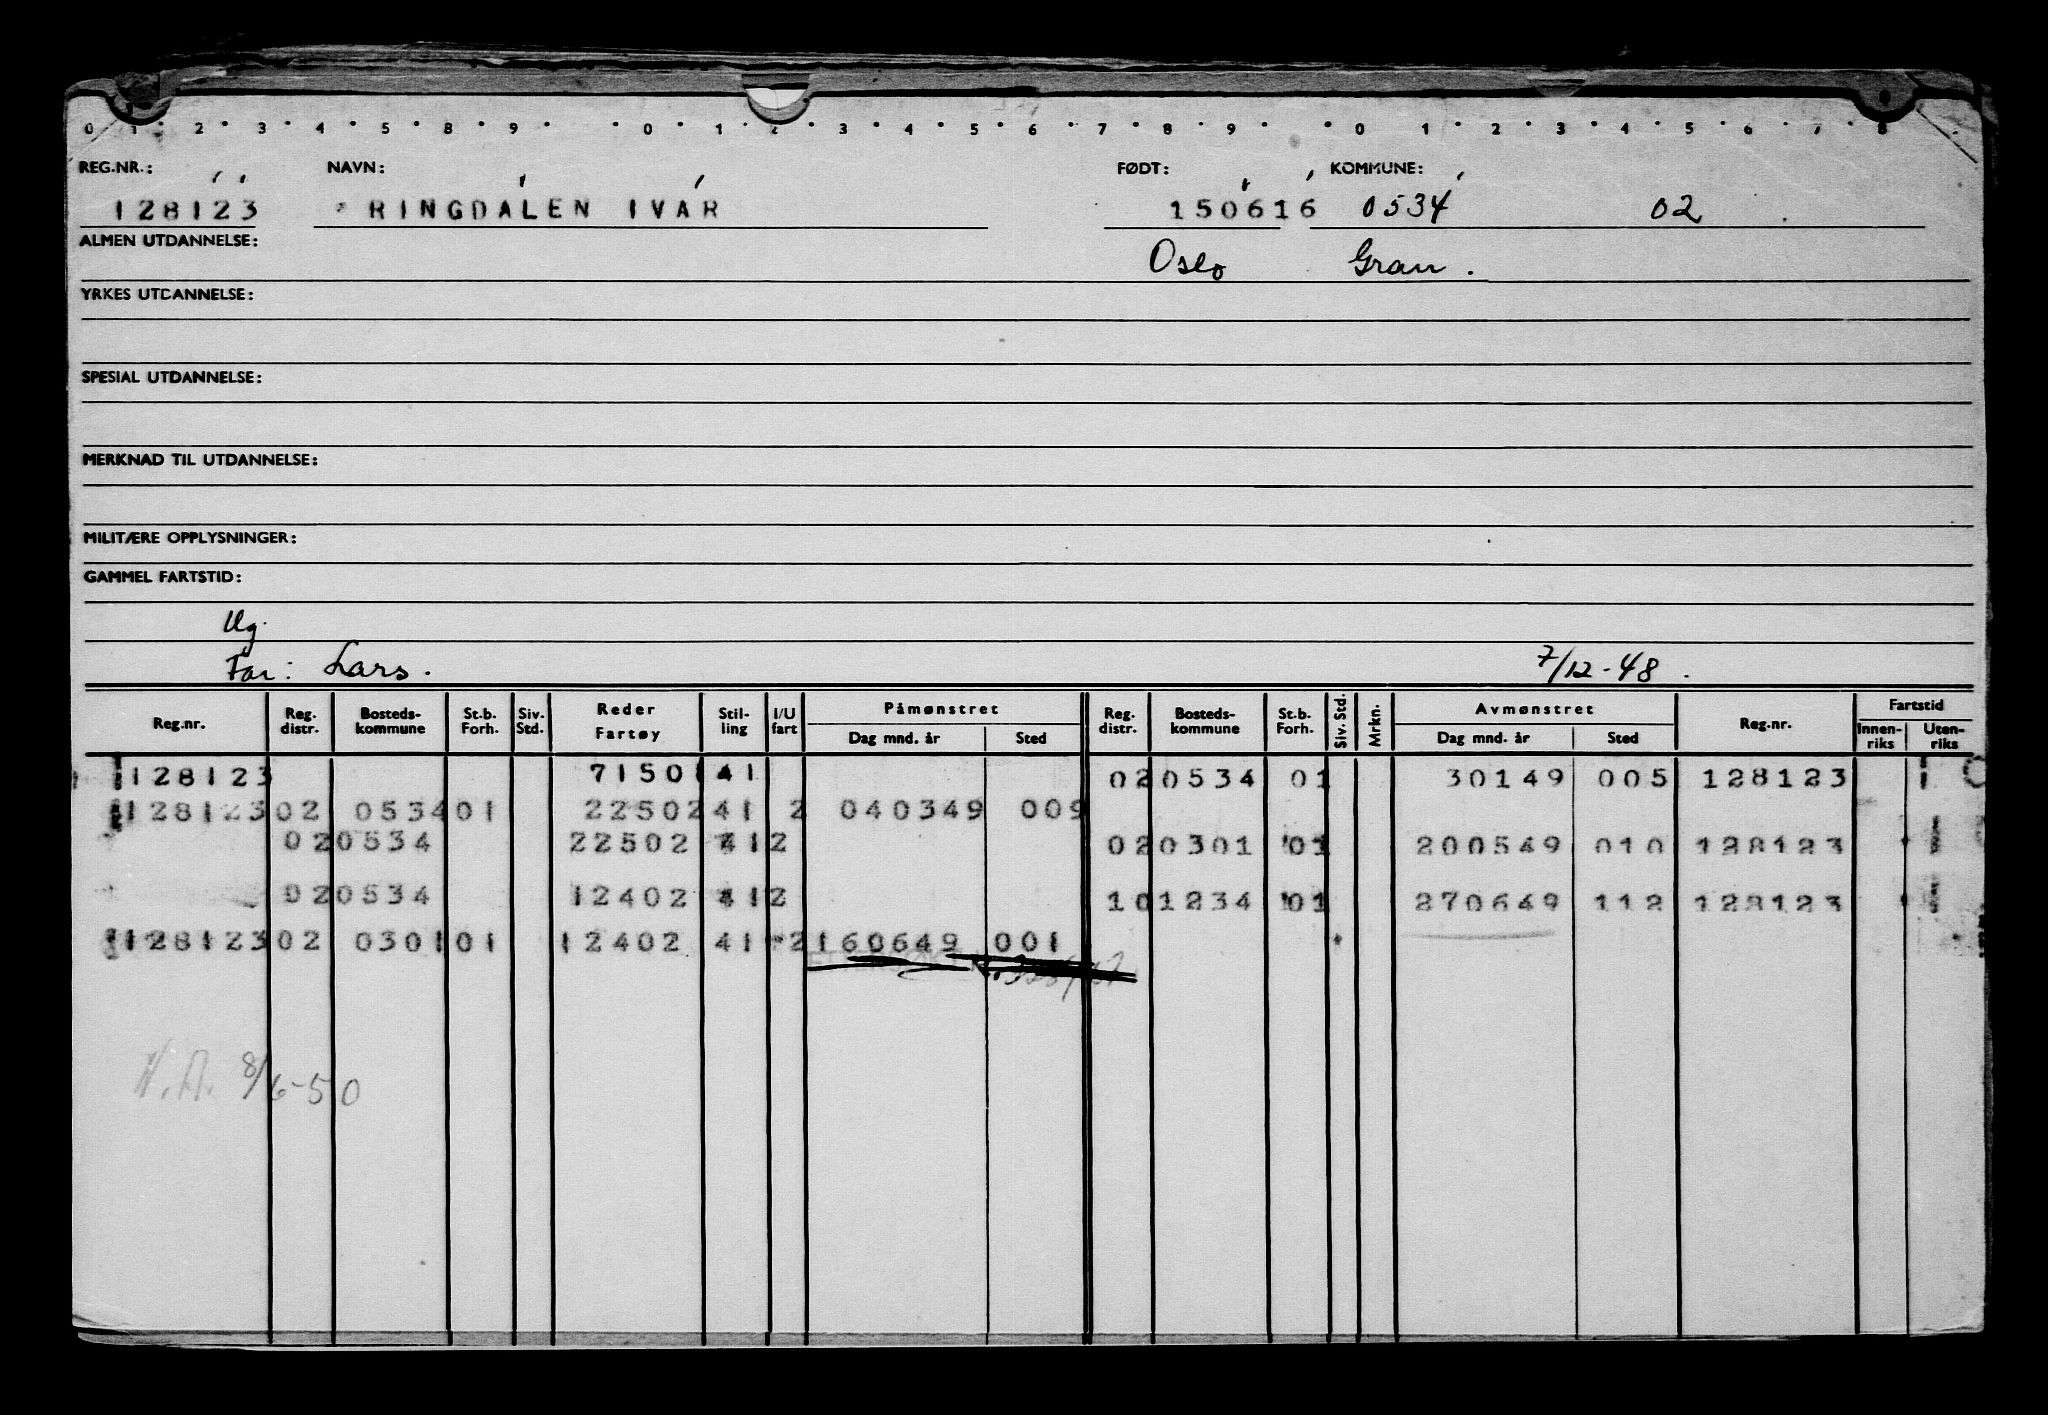 0 1 2 3 4 5 8 9 0 1 2 3 4 5 6 7 8 9 0 1 2 3 4 5 6 7 8
REG.NR.: NAVN: FØDT: KOMMUNE:
128123 RINGDALEN IVAR 150616 0534 02
ALMEN UTDANNELSE: Oslo Gran.
YRKES UTDANNELSE:
SPESIAL UTDANNELSE:
MERKNAD TIL UTDANNELSE:
MILITÆRE OPPLYSNINGER:
GAMMEL FARTSTID:
Ug.
Far: Lars. 7/12-48.
Reg.nr. Reg. distr. Bosteds-kommune St.b. Forh. Siv. Std. Reder Fartøy Stil-ling I/U fart Påmønstret Dag mnd. år Sted Reg. distr. Bosteds-kommune St.b. Forh. Siv. Std. Mrkn. Avmønstret Dag mnd. år Sted Reg.nr. Fartstid Innen-riks Uten-riks
128123 71501 41 02 0534 01 30149 005 128123 1
128123 02 0534 01 22502 41 2 040349 009
02 0534 22502 41 2 02 0301 01 200549 010 128123 1
02 0534 12402 41 2 10 1234 01 270649 112 128123 1
128123 02 0301 01 12402 41 2 160649 001
V.A. 8/6-50